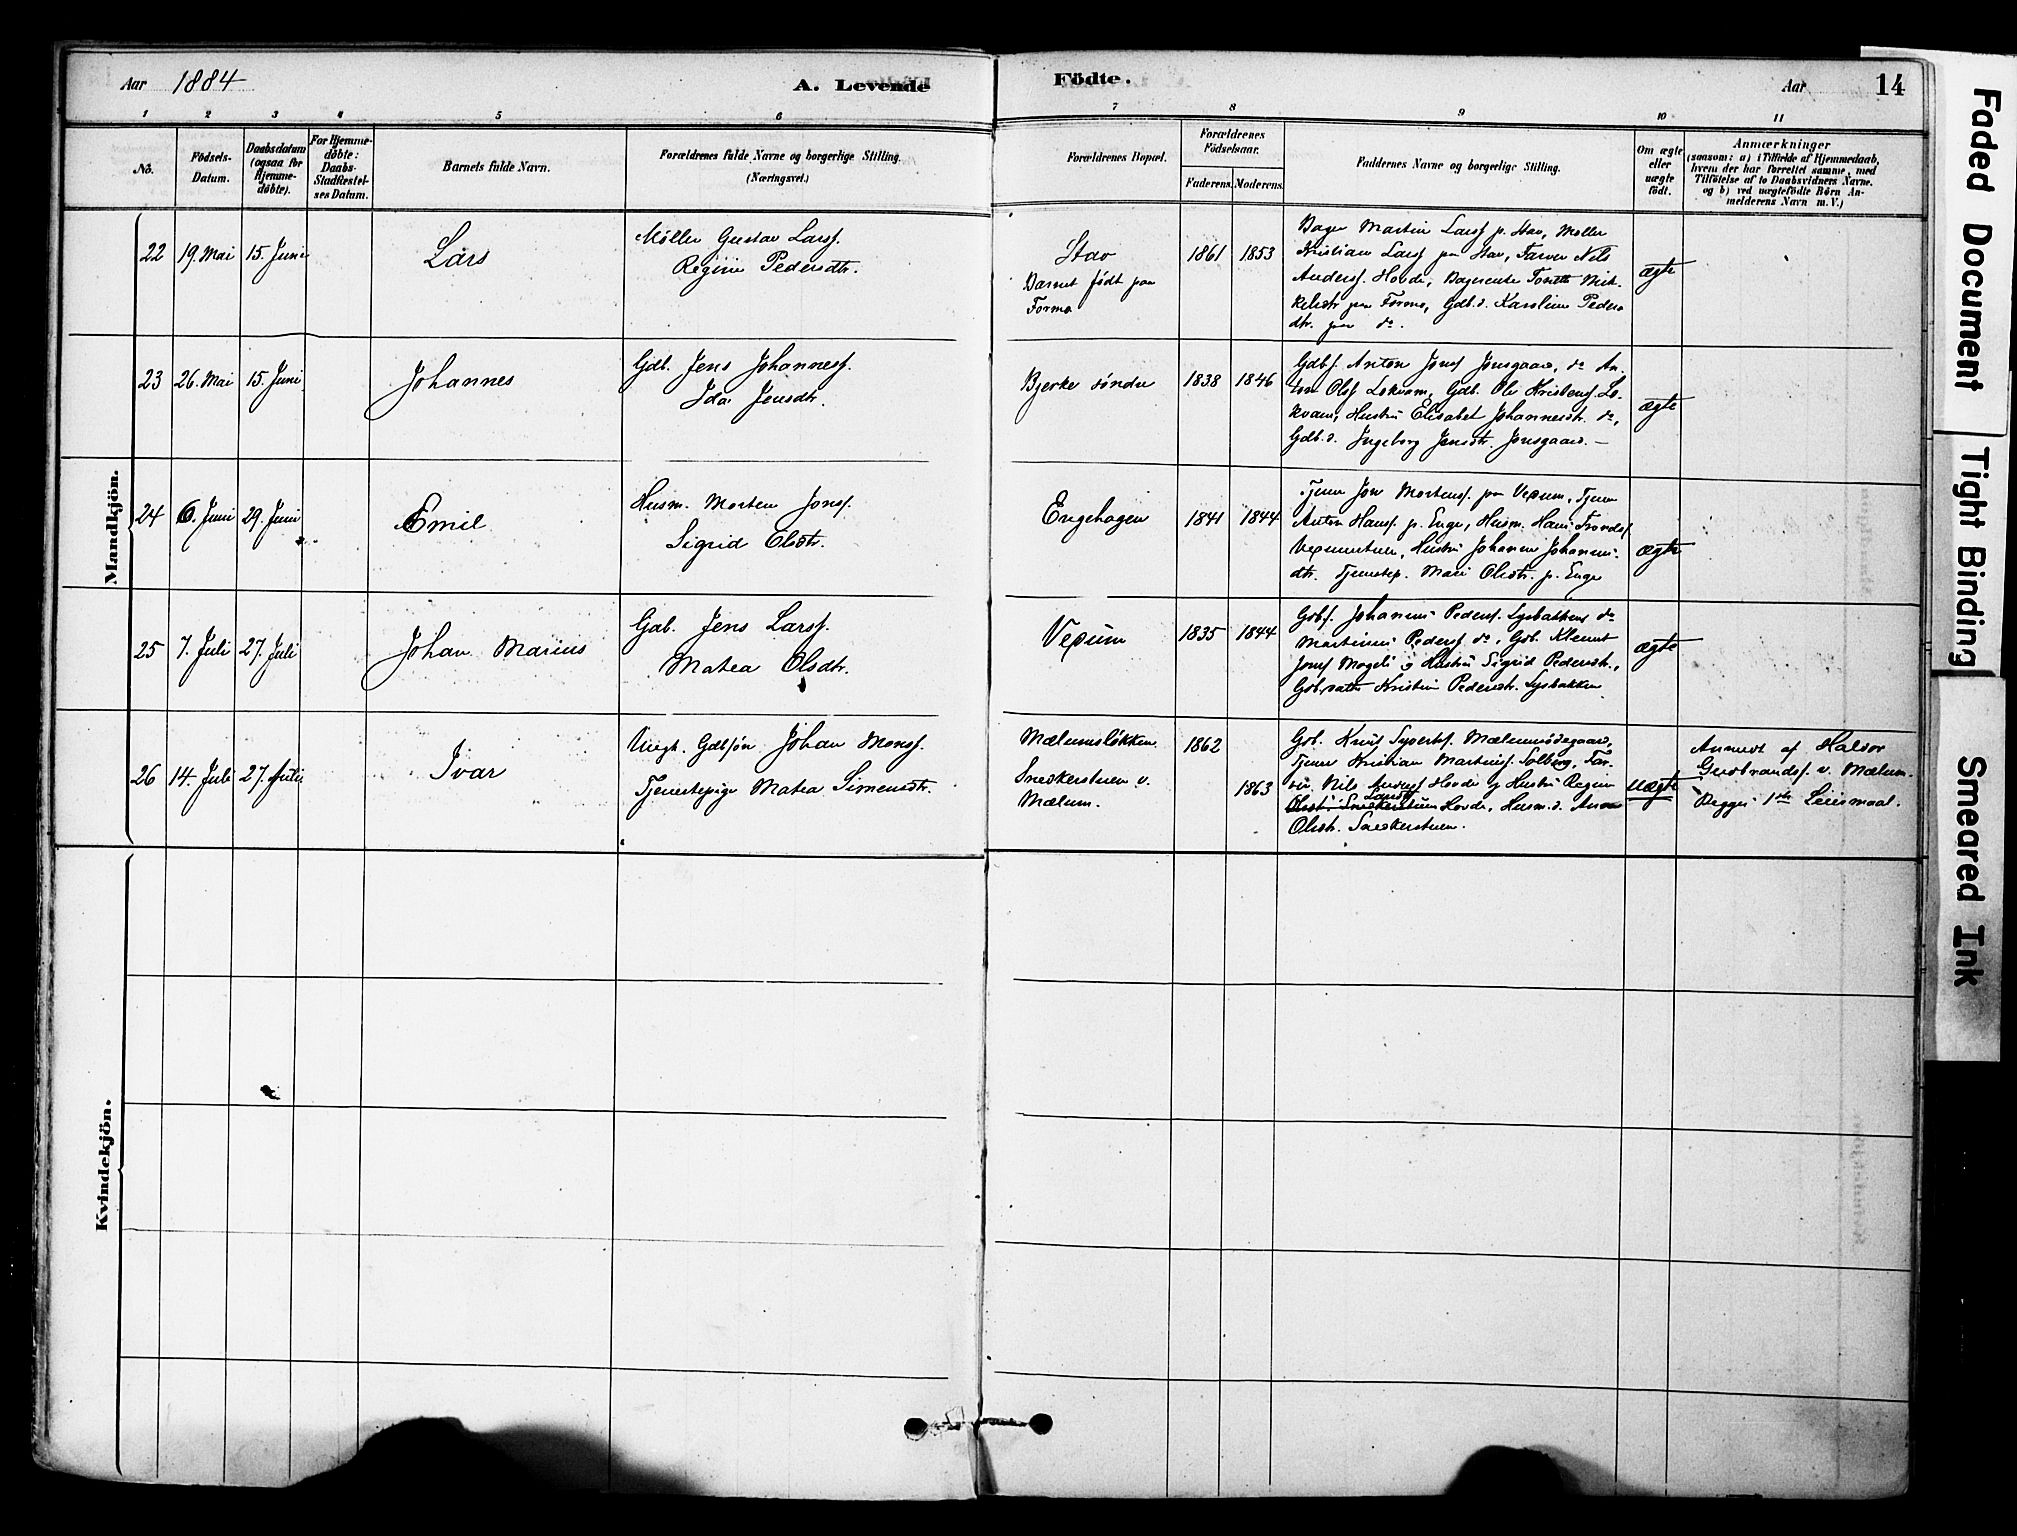 Aar 1884 A. Levende Födte. Aar 14
1 2 3 4 5 6 7 8 9 10 11
No.
Födsels-
Datum.
Daabsdatum
(ogsaa for
Hjemme-
döbte).
For Hjemme-
döbte:
Daabs-
Stadfæstel-
ses Datum.
Barnets fulde Navn.
Forældrenes fulde Navne og borgerlige Stilling.
(Næringsvei.)
Forældrenes Bopæl.
Forældrenes
Födselsaar.
Faderens. Moderens.
Faddernes Navne og borgerlige Stilling.
Om ægte
eller
uægte
födt.
Anmærkninger
(saasom: a) i Tilfælde af Hjemmedaab,
hvem der har forrettet samme, med
Tilföielse af to Daabsvidners Navne.
og b) ved uægtefödte Börn An-
melderens Navn m. V.)
Mandkjön.
22 19. Mai 15. Juni
Lars
Møller Gustav Larsf.
Regine Pedersdtr.
Stav
Barnet født paa
Formo
1861 1853
Bager Martin Larsf p. Stav, Møller
Kristian Larsf paa Stav, Farver Nils
Andersf. Hovde, Bagerenke Mik-
kelsdtr paa Formo, Gdb.d. Karoline Peders
dtr. paa do.
ægte
23 26. Mai 15. Juni
Johannes
Gdb. Jens Johannesf.
Ida Jensdtr.
Bjerke søndre
1838 1846
Gdbf. Anton Jonsf Jonsgaard, do An-
ton Olsf Lokvam, Gdb. Ole Kristensf. Lo-
kvam, Hustru Elisabet Johannesdtr. do,
Gdb.d. Ingeborg Jensdtr. Jonsgaard. —
ægte
24 6. Juni 29. Juni
Emil
Husm. Morten Jonsf.
Sigrid Olsdtr.
Engehagen
1841 1844
Tjener Jon Mortensf. paa Vexum, Tjener
Anton Hansf. p. Enge, Husm. Hans Trondsf
Hustru Johanne Johannes-
dtr. Tjenestep. Mari Olsdtr. p. Enge
ægte
25 7. Juli 27. Juli
Johan Marius
Gdb. Jens Larsf.
Matea Olsdtr.
Vexum
1835 1844
Gdbf. Johannes Pedersf. Lysbakken do
Martinus Pedersf do, Gdb. Klemet
Jonsf Mogeli og Hustru Sigrid Pedersdtr.,
Gdb.datter Kristine Pedersdtr. Lysbakken
ægte
26 14. Juli 27. Juli
Ivar
Ungk. Gdbsøn Johan Monsf.
Tjenestepige Matea Simensdtr.
Mælumsløkken
Snedkerstuen v.
Mælum.
1862
1863
Gdb. Knut Syvertsf. Mælumsødegaard,
Tjener Kristian Martinsf. Solberg, Far-
ver Nils Andersf Hovde og Hustru Regine
Larsdtr
Olsdtr Snedkerstuen Hovde, Husm.d. Anne
Olsdtr. Snedkerstuen.
uægte
Anmeldt af Halvor
Gudbrandsf. v. Mælum.
Begges 1ste Leiermaal.
Kvindekjön.
Faded Document
Tight Binding
Smeared Ink